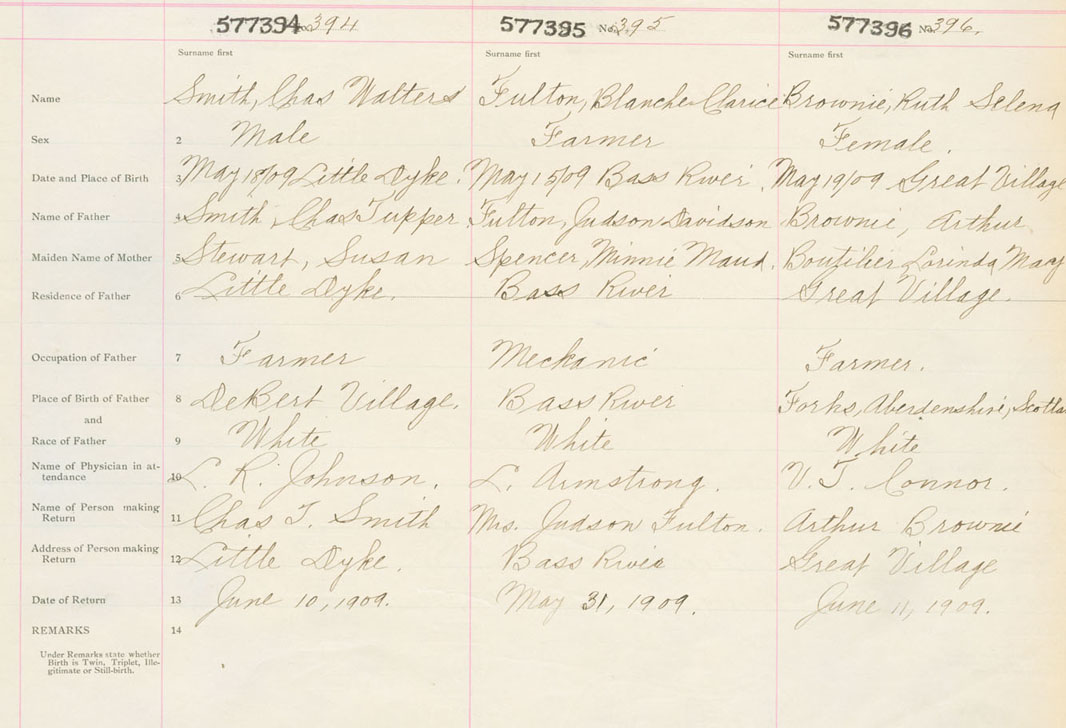 577394 No. 394 577395 No. 395 577396 No. 396.
Surname first Surname first Surname first
Name Smith, Chas Walters Fulton, Blanche Clarice Brownie, Ruth Selena
Sex 2 Male Farmer Female.
Date and Place of Birth 3 May 18/09 Little Dyke. May 15/09 Bass River. May 19/09 Great Village
Name of Father 4 Smith, Chas Tupper Fulton, Judson Davidson Brownie, Arthur
Maiden Name of Mother 5 Stewart, Susan Spencer, Minnie Maud. Boutilier Lorinda Mary
Residence of Father 6 Little Dyke. Bass River Great Village.
Occupation of Father 7 Farmer Meckanic Farmer.
Place of Birth of Father 8 DeBert Village. Bass River Forks, Aberdenshire, Scotla
and
Race of Father 9 White White White
Name of Physician in at-
tendance 10 L. R. Johnson. L. Armstrong. V. T. Connor.
Name of Person making
Return 11 Chas T. Smith Mrs. Judson Fulton. Arthur Brownie
Address of Person making
Return 12 Little Dyke. Bass River Great Village
Date of Return 13 June 10, 1909. May 31, 1909. June 11, 1909.
REMARKS 14
Under Remarks state whether
Birth is Twin, Triplet, Ille-
gitimate or Still-birth.